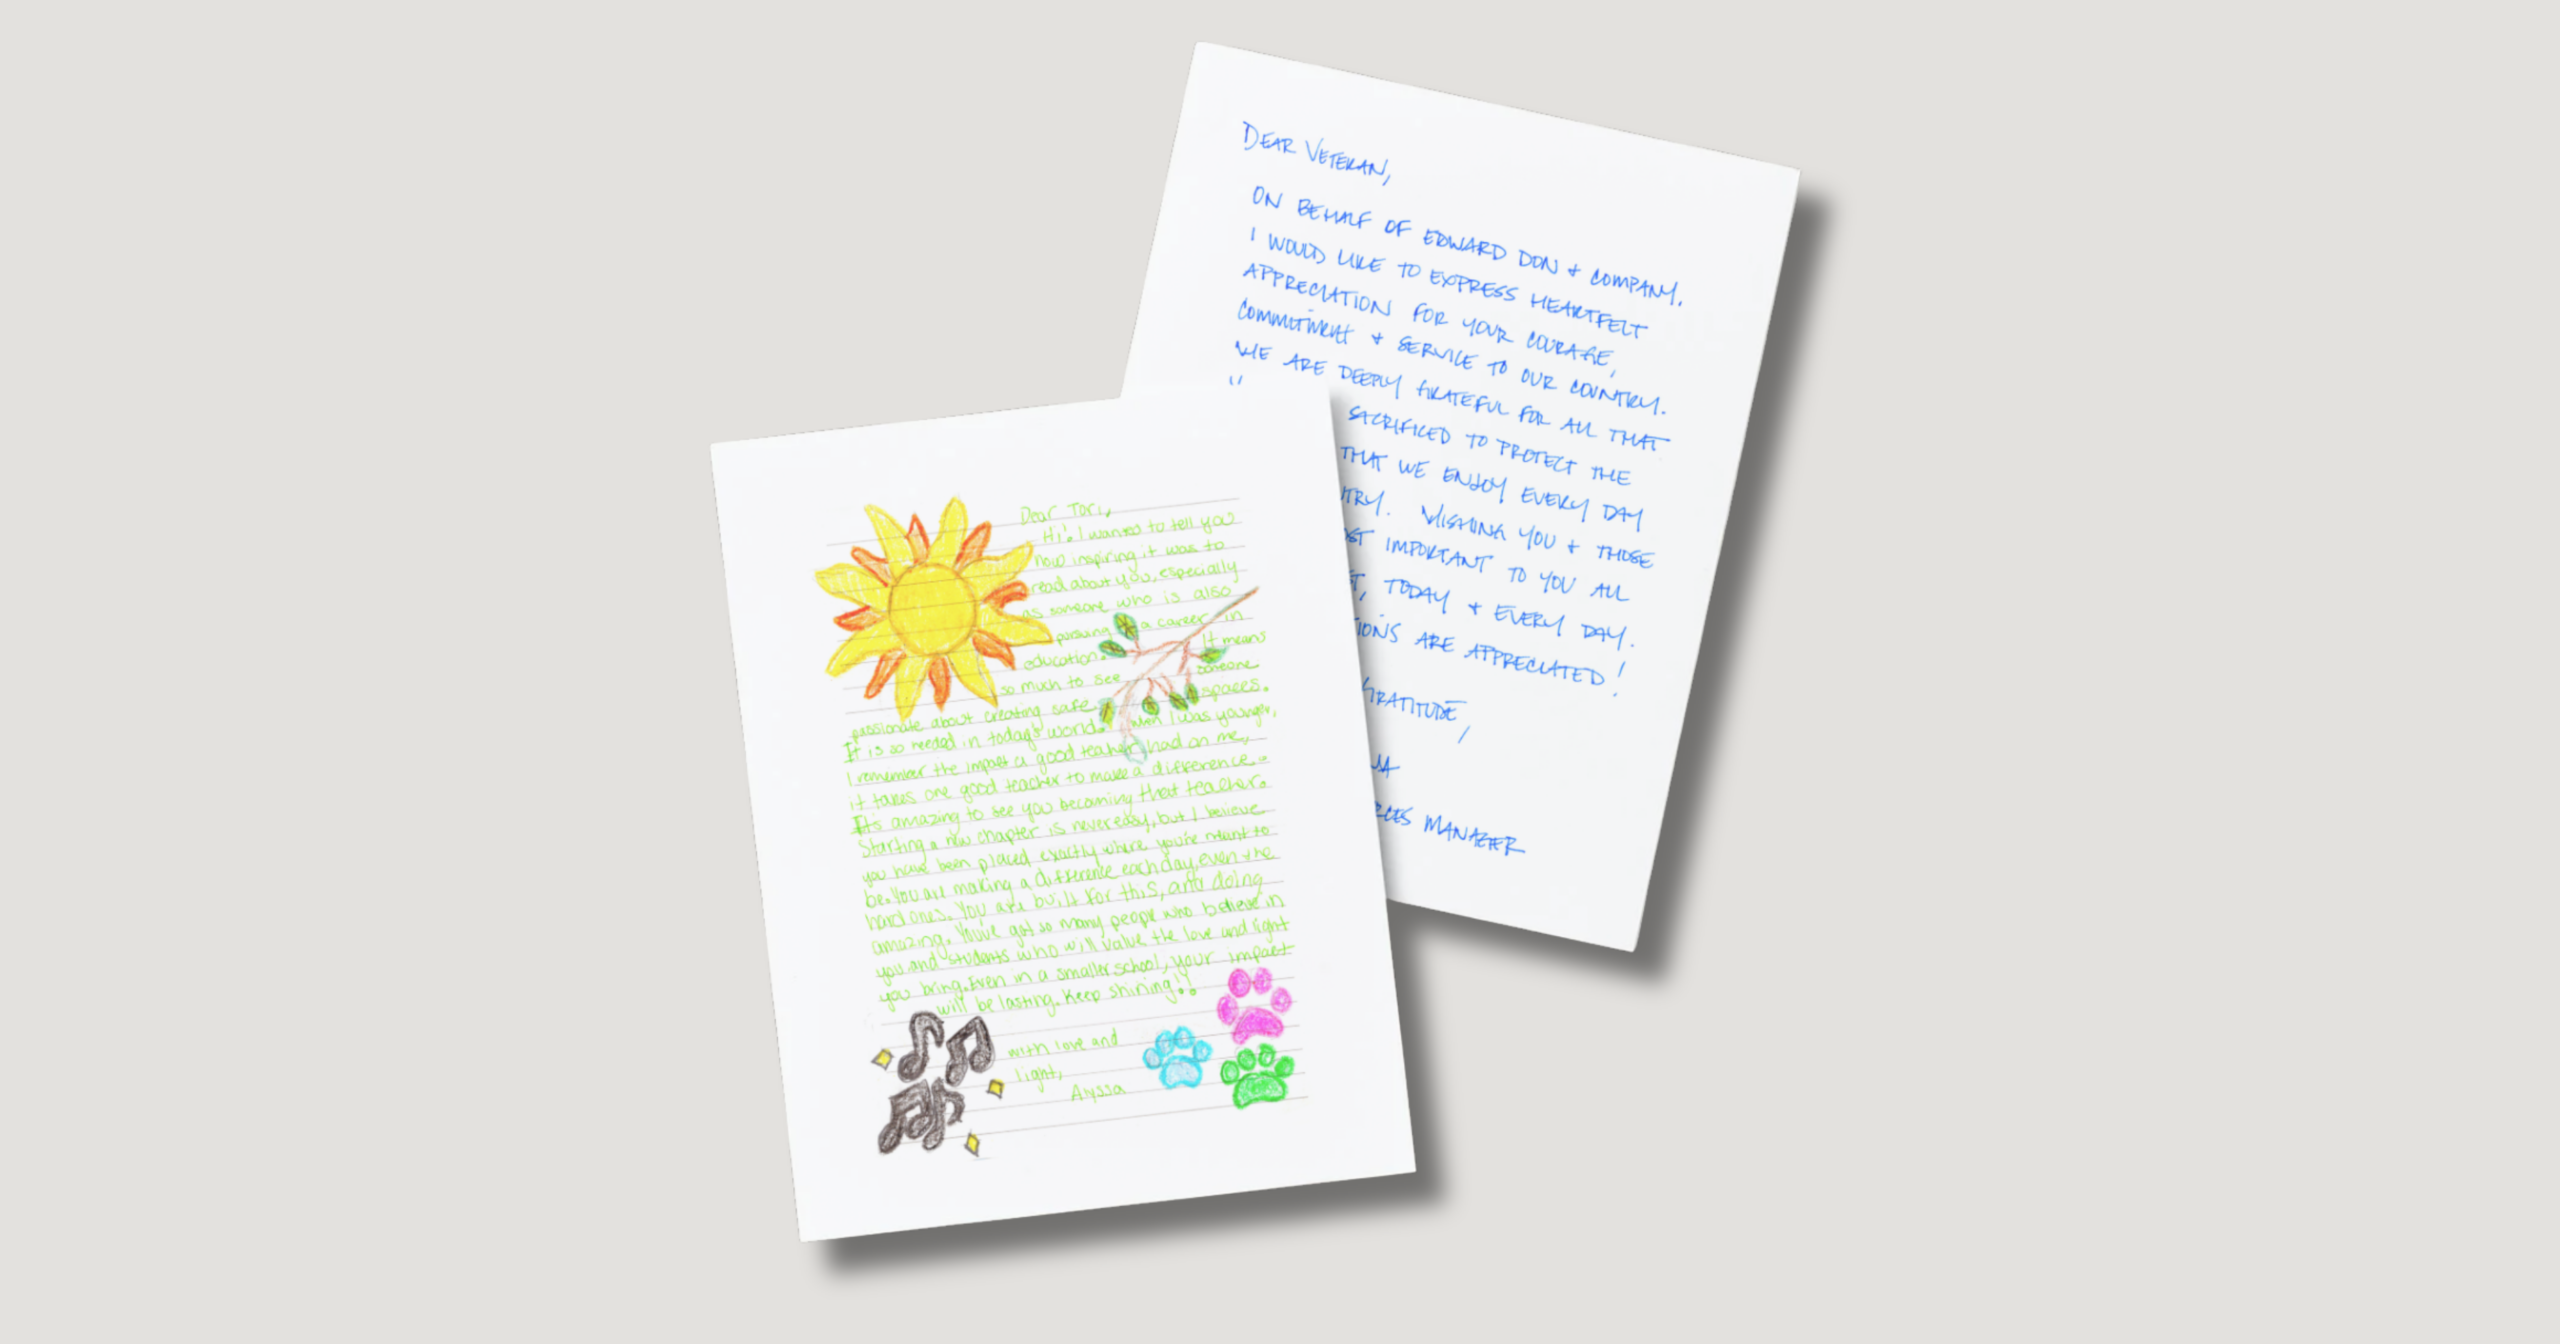 DEAR VETERAN,
ON BEHALF OF EDWARD DON & COMPANY.
I WOULD LIKE TO EXPRESS HEARTFELT
APPRECIATION FOR YOUR COURAGE,
COMMITMENT & SERVICE TO OUR COUNTRY.
WE ARE DEEPLY GRATEFUL FOR ALL THAT
SACRIFICED TO PROTECT THE
THAT WE ENJOY EVERY DAY
WISHING YOU & THOSE
IMPORTANT TO YOU ALL
TODAY & EVERY DAY.
ARE APPRECIATED!
GRATITUDE,
MANAGER
Dear Tori,
Hi! I wanted to tell you
how inspiring it was to
read about you, especially
as someone who is also
pursuing a career in
education. It means
so much to see someone
passionate about creating safe spaces.
It is so needed in today's world. When I was younger,
I remember the impact a good teacher had on me,
it takes one good teacher to make a difference.
It's amazing to see you becoming that teacher.
Starting a new chapter is never easy, but I believe
you have been placed exactly where you're meant to
be. You are making a difference each day, even the
hard ones. You are built for this, and doing
amazing. You've got so many people who believe in
you and students who will value the love and light
you bring. Even in a smaller school, your impact
will be lasting. Keep shining!!
with love and
light,
Alyssa